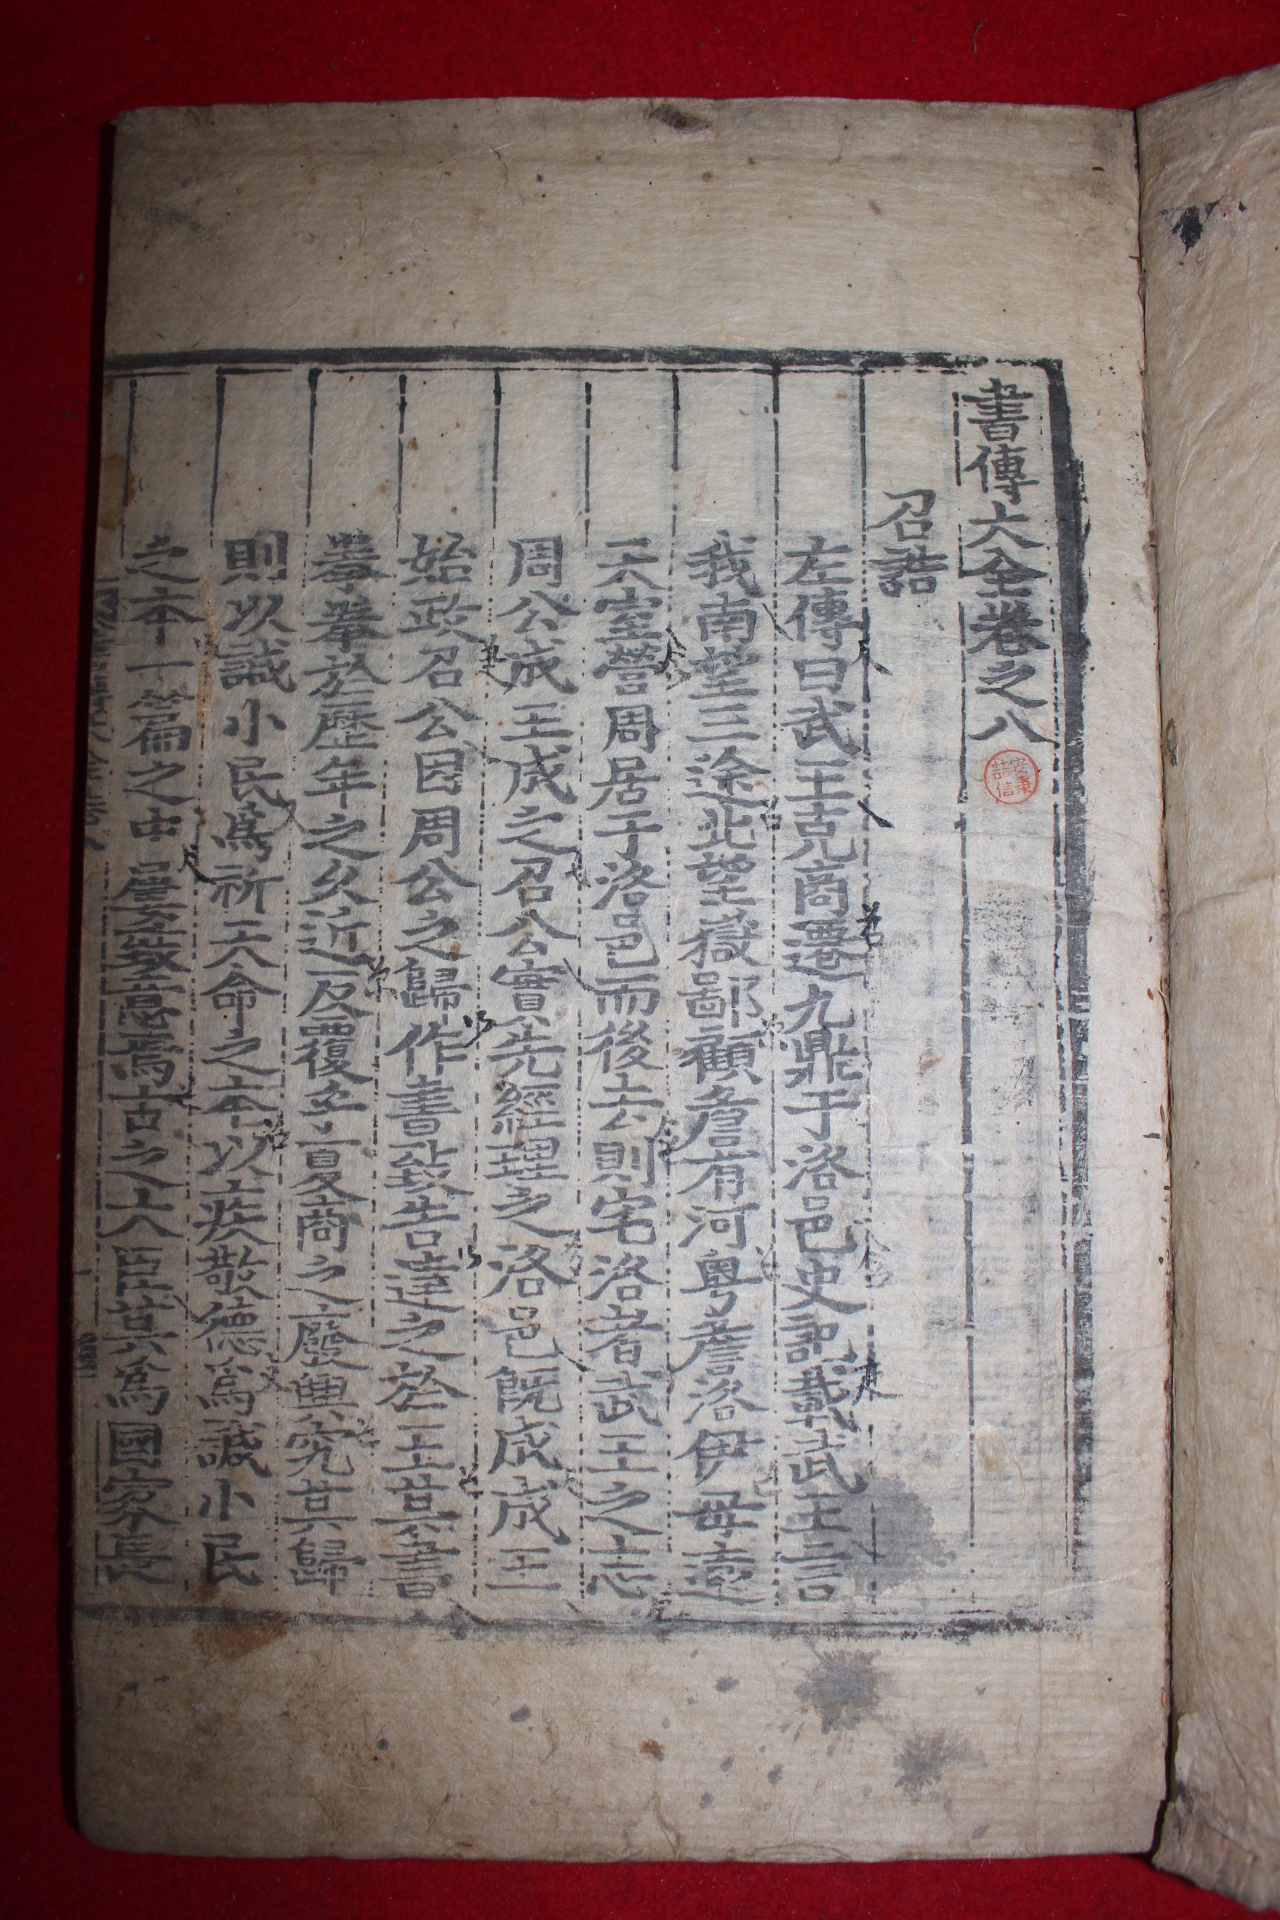 書傳大全卷之八
召誥
左傳曰武王克商遷九鼎于洛邑史記載武王言
我南望三途北望嶽鄙顧詹有河粵詹洛伊毋遠
天室營周居于洛邑而後去公則宅洛者武王之志
周公成王成之召公實先經理之洛邑旣成成王
始政召公因周公之歸作書致告達之於王其書
拳拳於歷年之久近反覆乎夏商之廢興究其歸
則以諴小民爲祈天命之本以疾敬德爲諴小民
之本一篇之中屢致意焉古之大臣其爲國家長